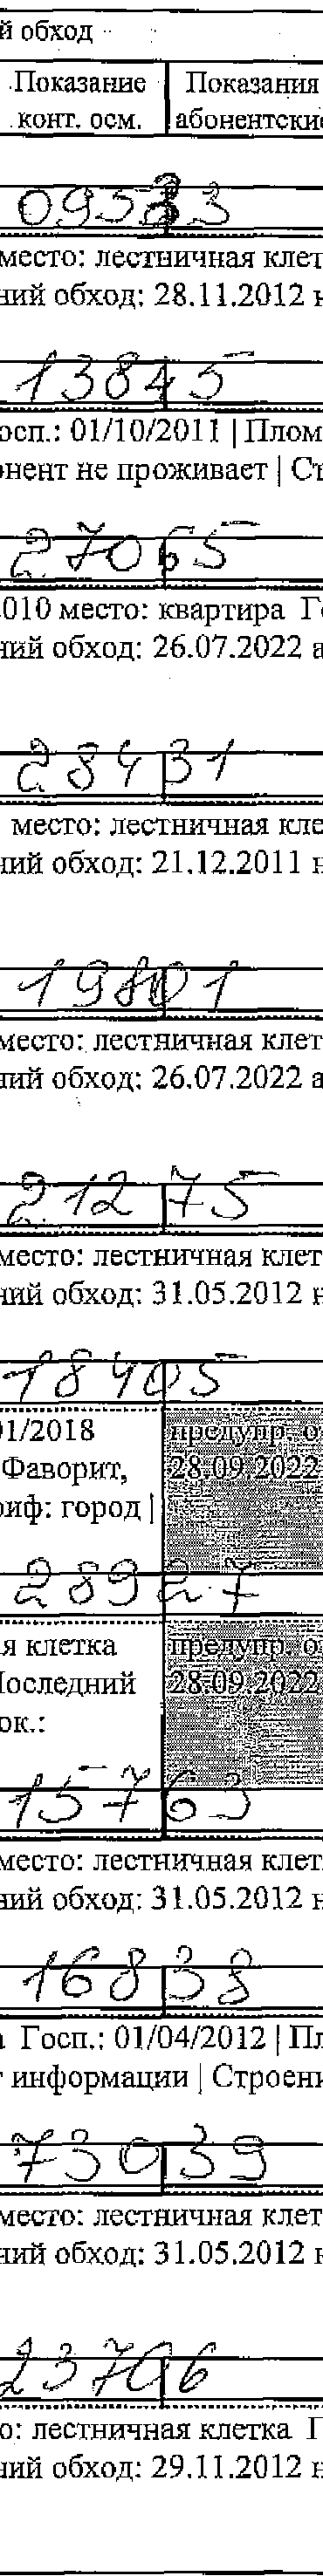 й обход
Показание Показания
конт. осм. абонентские
09533
место: лестничная клет
ний обход: 28.11.2012 н
13845
осп.: 01/10/2011 | Плом
онент не проживает | Ст
27065
2010 место: квартира Го
ний обход: 26.07.2022 а
28431
место: лестничная кле
ний обход: 21.12.2011 н
19801
место: лестничная клет
ний обход: 26.07.2022 а
21275
место: лестничная клет
ний обход: 31.05.2012 н
18405
01/2018 предупр. о
Фаворит, 28.09.2022
риф: город |
28927
я клетка предупр. о
Последний 28.09.2022
ок.:
15763
место: лестничная клет
ний обход: 31.05.2012 н
16838
а Госп.: 01/04/2012 | Пл
т информации | Строени
73039
место: лестничная клет
ний обход: 31.05.2012 н
23706
о: лестничная клетка Г
ний обход: 29.11.2012 н